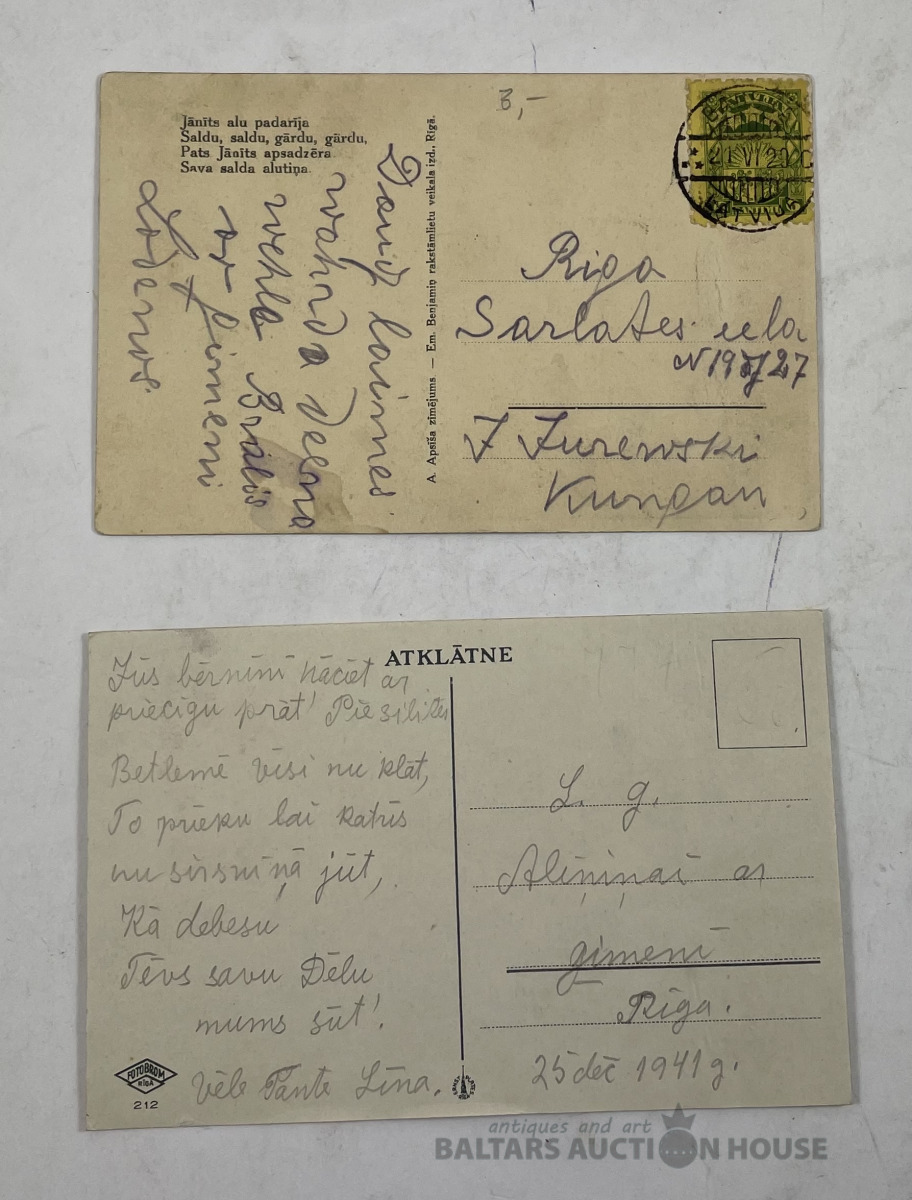 3,-
LATVIJA
Jānīts alu padarīja
Saldu, saldu, gārdu, gārdu,
Pats Jānīts apsadzēra
Sava salda alutiņa.
Daudz laimes
wahrda deena
wehle Brālis
ar
A. Apsīša zīmējums. — Em. Benjamiņ rakstāmlietu veikala izd., Rīgā.
Riga
Sarlates iela
J Jurewski
Kungam
ATKLĀTNE
Jūs bērniņi nāciet ar
priecīgu prāt!
Betlemē visi nu klāt,
To prieku lai katris
nu sirsniņā jūt,
Kā debesu
Tēvs savu Dēlu
mums sūt!
Vēle Tante Līna.
FOTOBROM
RĪGĀ
212
L. g.
Aliņiņai ar
ģimeni
Rīga.
25 dec 1941 g.
antiques and art
BALTARS AUCTION HOUSE